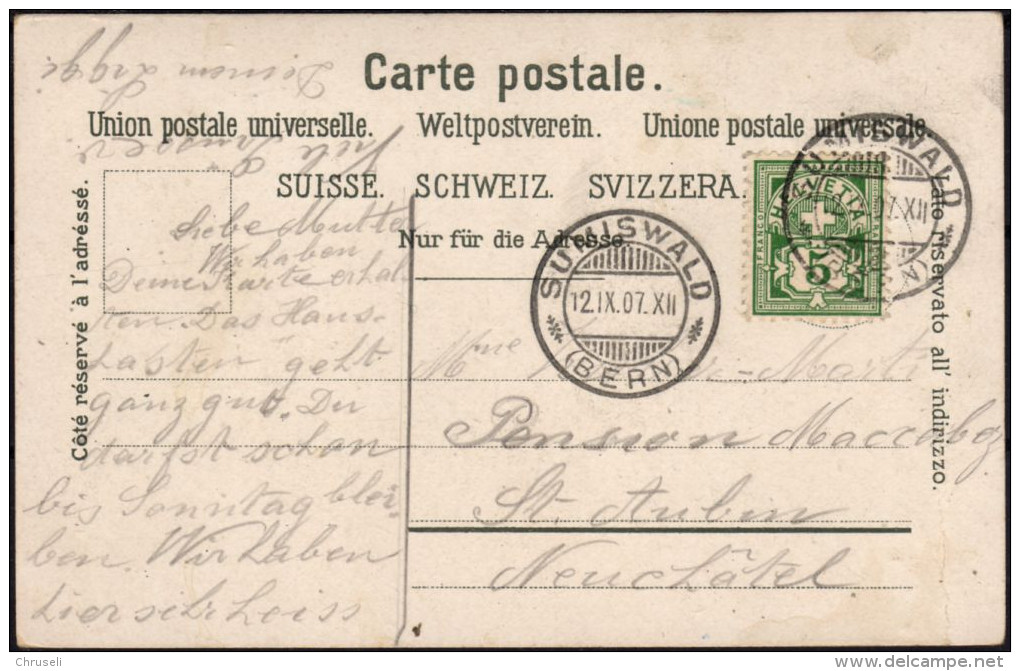 Carte postale.
Union postale universelle. Weltpostverein. Unione postale universale.
SUISSE. SCHWEIZ. SVIZZERA.
Nur für die Adresse
Côté réservé à l'adréssé.
Lato riservato all' indirizzo.
SUMISWALD
12.IX.07.XII
(BERN)
SUMISWALD
07.XII
HELVETIA
FRANCO
5
Liebe Mutter
Wir haben
Deine Karte erhal-
ten. Das Haus-
halten geht
ganz gut. Du
darfst schon
bis Sonntag blei-
ben. Wir haben
hier sehr heiss
Viele
Deinem
Mme
-Marti
Pension
St. Aubin
Neuchâtel
Chruseli
delcampe.net